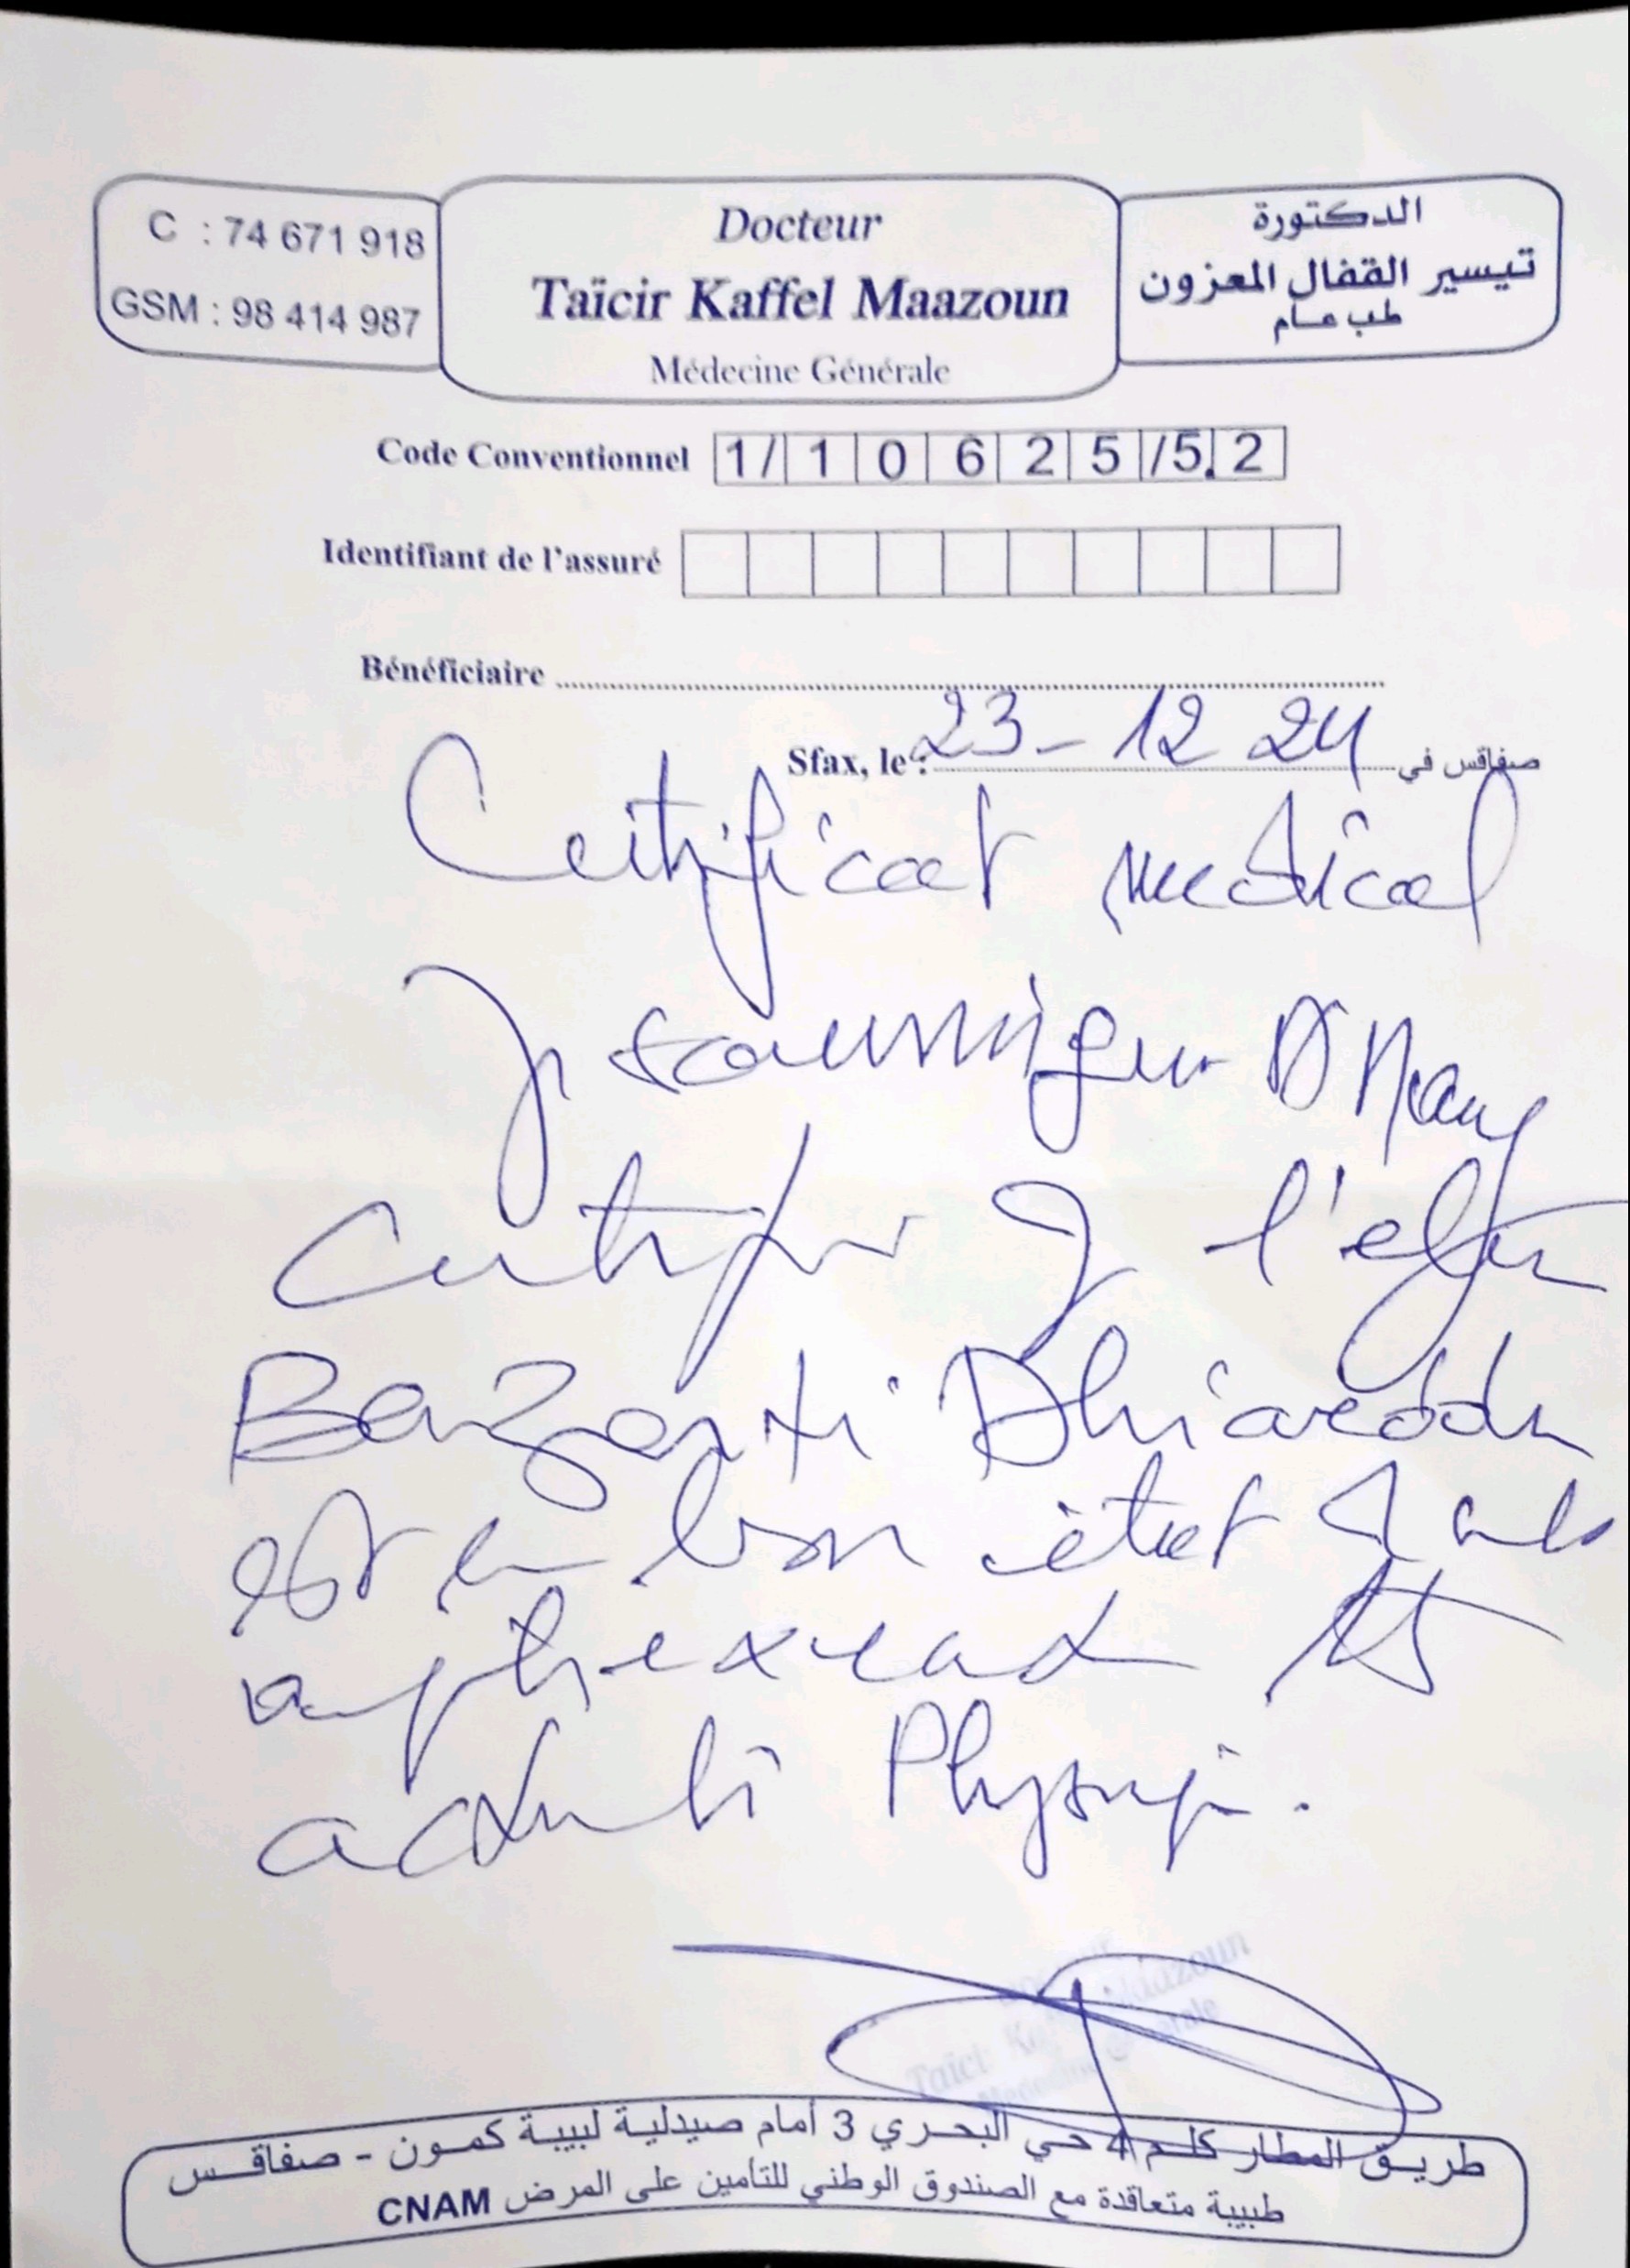 C : 74 671 918
GSM : 98 414 987
Docteur
Taïcir Kaffel Maazoun
Médecine Générale
الدكتورة
تيسير القفال المعزون
طب عام
Code Conventionnel 1/ 1 0 6 2 5 /5. 2
Identifiant de l'assuré
Bénéficiaire
Sfax, le : 23 - 12 24 صفاقس في
Certificat medical
Je soussigner Dr
certifier q l'eleve
Banzarti Dhiaeddin
est en bon état
activité Physique.
Taïcir Maazoun
طريق المطار كلم 4 حي البحري 3 أمام صيدلية لبيبة كمون - صفاقس
طبيبة متعاقدة مع الصندوق الوطني للتأمين على المرض CNAM